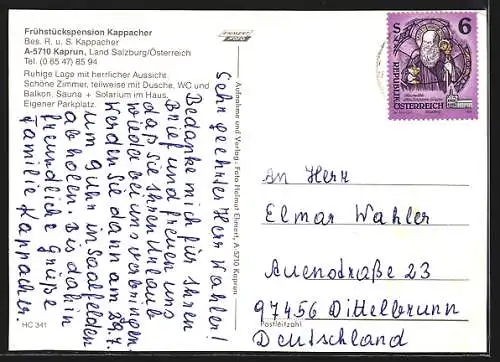 Frühstückspension Kappacher
Bes. R. u. S. Kappacher
A-5710 Kaprun, Land Salzburg/Österreich
Tel. (0 65 47) 85 94
Ruhige Lage mit herrlicher Aussicht.
Schöne Zimmer, teilweise mit Dusche, WC und
Balkon, Sauna + Solarium im Haus.
Eigener Parkplatz.
Sehr geehrter Herr Wahler!
Bedanke mich für Ihren
Brief und freuen uns
daß sie Ihren Urlaub
wieder bei uns verbringen.
Werden sie dann am 29.7.
um 9 Uhr in Saalfelden
abholen. Bis dahin
freundliche Grüße
Familie Kappacher
HC 341
Aufnahme und Verlag: Foto Helmut Eimert, A-5710 Kaprun
6
S
REPUBLIK
ÖSTERREICH
An Herr
Elmar Wahler
Auenstraße 23
97456 Dittelbrunn
Postleitzahl
Deutschland